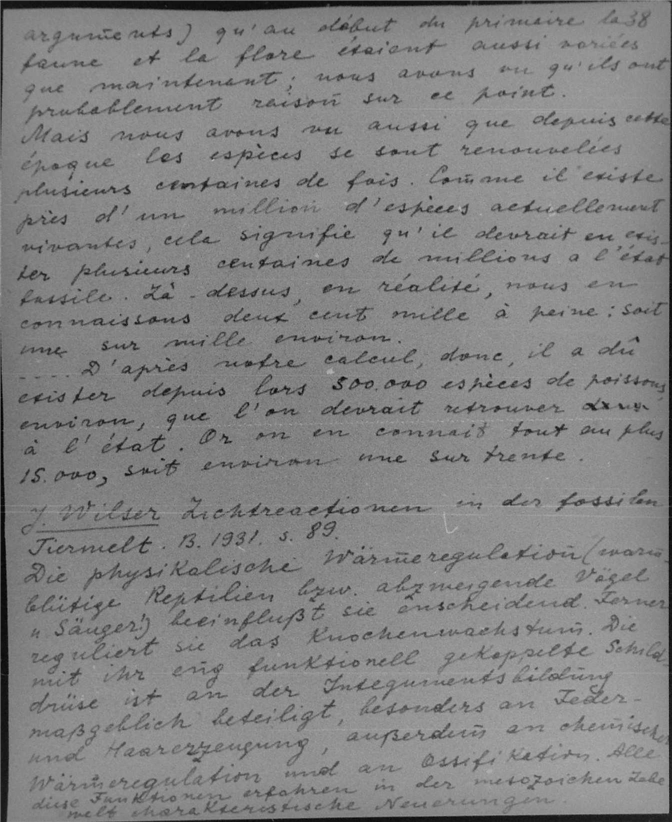 38
arguments) qu'au début du primaire la
faune et la flore étaient aussi variées
que maintenant; nous avons vu qu'ils ont
probablement raison sur ce point.
Mais nous avons vu aussi que depuis cette
époque les espèces se sont renouvelées
plusieurs centaines de fois. Comme il existe
près d'un million d'espèces actuellement
vivantes, cela signifie qu'il devrait en exis-
ter plusieurs centaines de millions a l'état
fossile. Là-dessus, en réalité, nous en
connaissons deux cent mille à peine: soit
une sur mille environ.
.... D'après notre calcul, donc, il a dû
exister depuis lors 500.000 espèces de poissons
environ, que l'on devrait retrouver
à l'état. Or on en connait tout au plus
15.000, soit environ une sur trente.
J. Wilser Lichtreactionen in der fossilen
Tierwelt. B. 1931. s. 89.
Die physikalische Wärmeregulation (warm-
blütige Reptilien bzw. abzweigende Vögel
u. Säuger) beeinflußt sie enscheidend. Ferner
reguliert sie das Knochenwachstum. Die
mit ihr eng funktionell gekoppelte Schild
drüse ist an der Integumentsbildung
maßgeblich beteiligt, besonders an Feder-
und Haarerzeugung, außerdem an chemischer
Wärmeregulation und an Ossifikation. Alle
diese Funktionen erfahren in der mesozoichen Lebe
welt charakteristische Neuerungen.